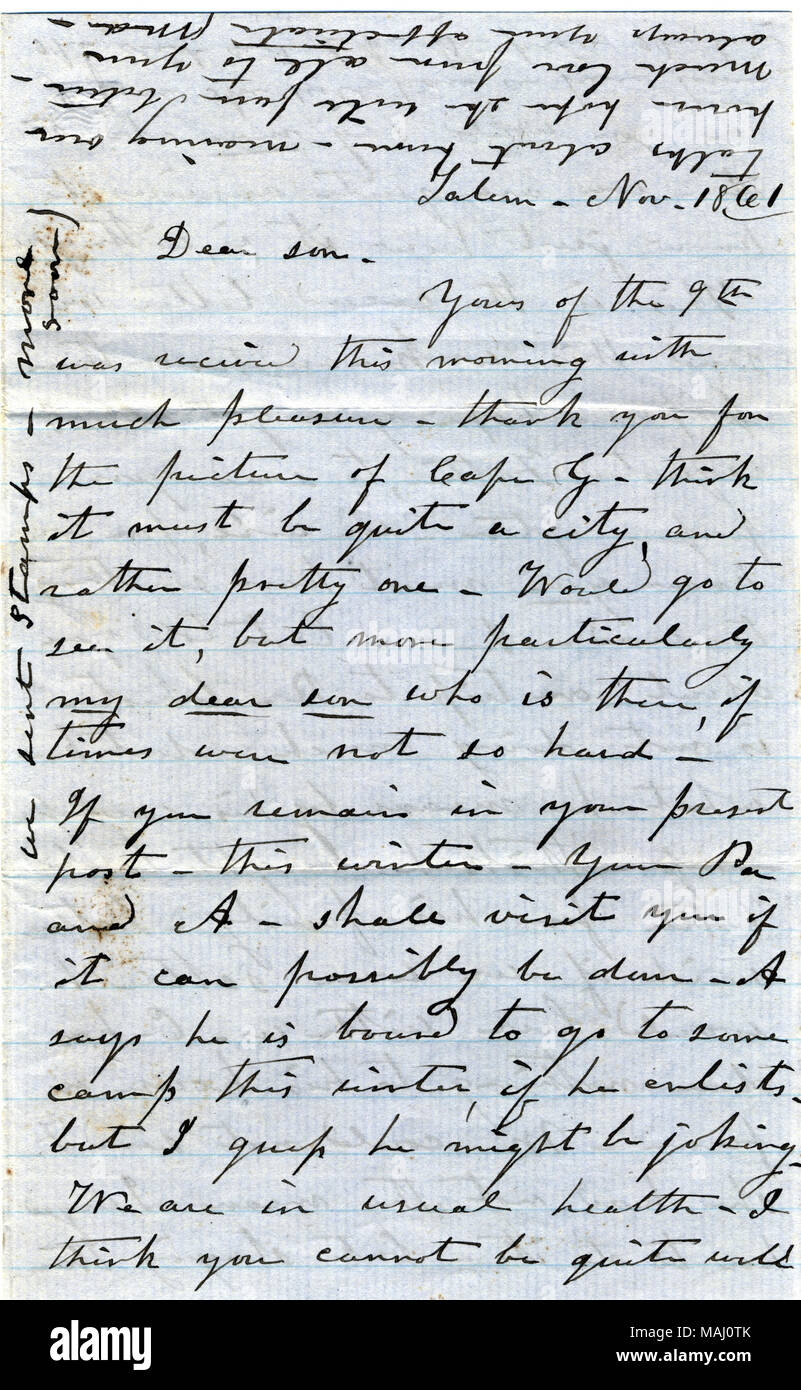 talks about home - meaning our
home - hope she will ſoon
much love from all to you
always your affectionate Ma -
Salem - Nov - 1861
Dear son -
Yours of the 9th
was received this morning with
much pleasure - thank you for
the picture of Cape G - think
it must be quite a city, and
rather pretty one - Would go to
see it, but more particularly
my dear son who is there, if
times were not so hard -
If you remain in your present
post - this winter - your Pa
and A - shall visit you if
it can possibly be done - A
says he is bound to go to some
camp this winter, if he enlists -
but I guess he might be joking -
We are in usual health - I
think you cannot be quite well
we sent stamps - more
soon)
alamy
Image ID: MAJ0TK
www.alamy.com